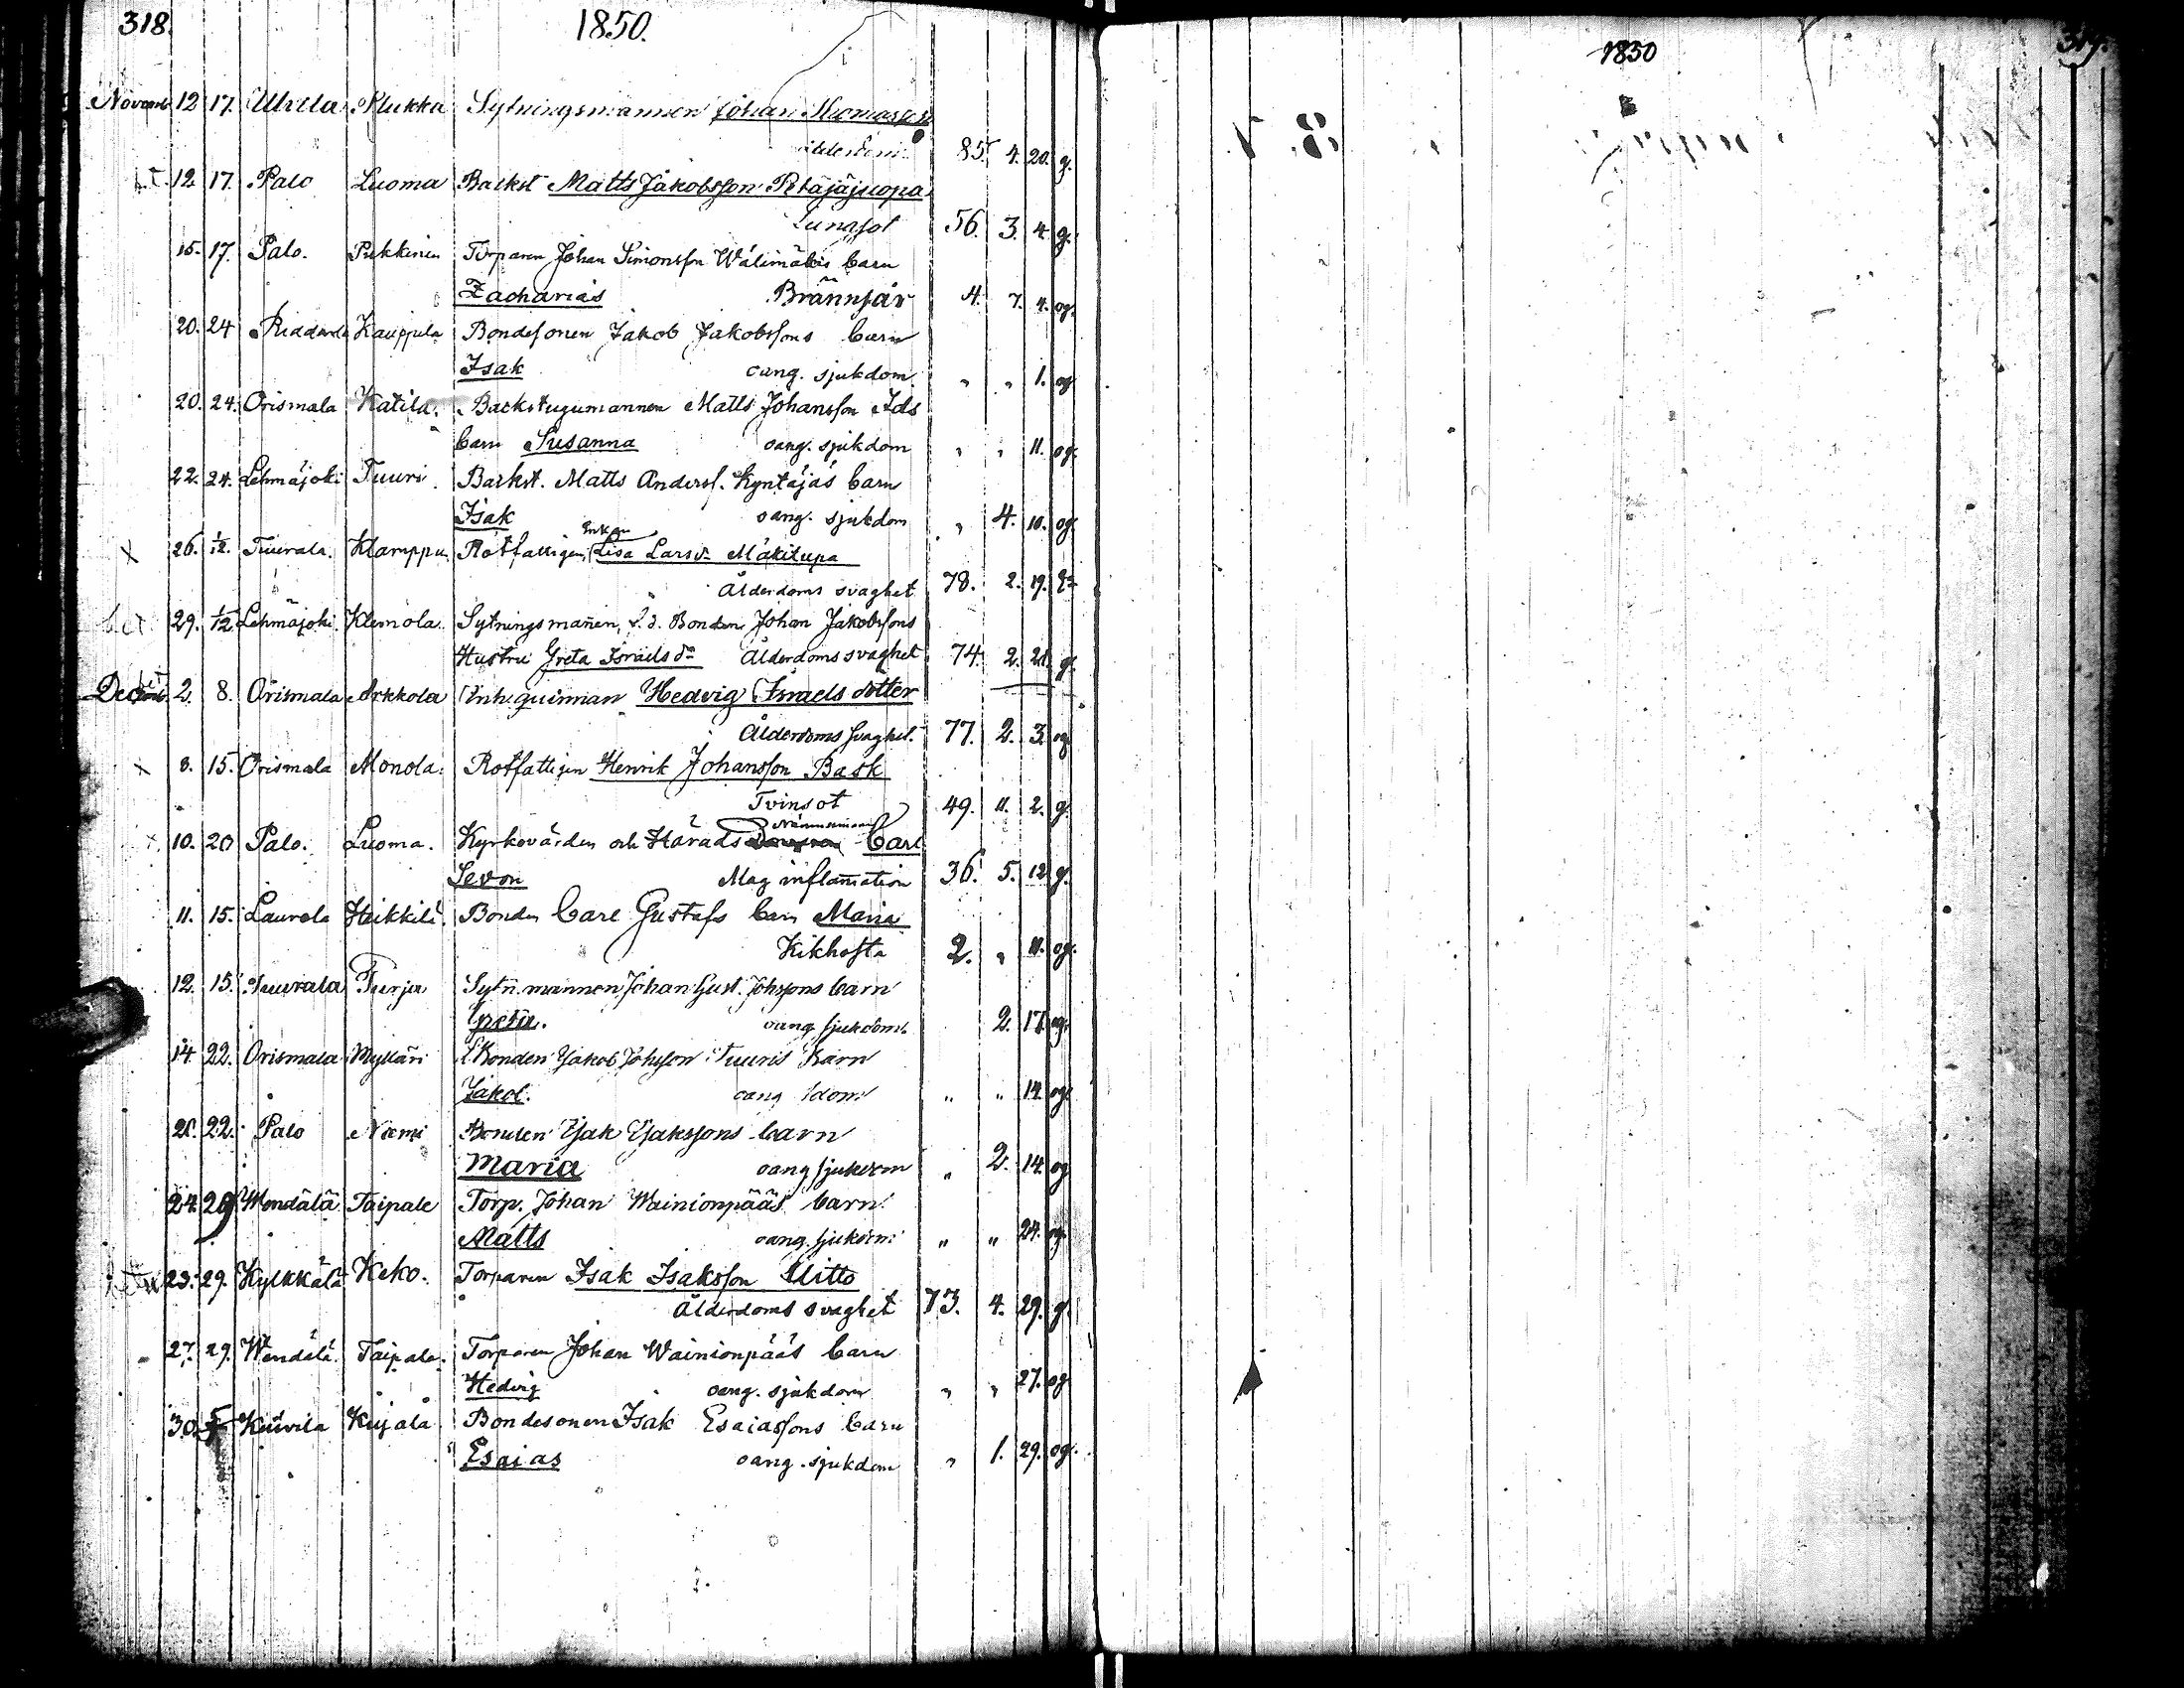 318.
1850.
Novemb. 12 17. Ulvila Klukka Sytningsmannen Johan Thomasson
ålderdom. 85. 4. 20. g.
12. 17. Palo Luoma Backst. Matts Jakobsson Petäjäjuopa
Lungsot 56. 3. 4. g.
15. 17. Palo. Pukkinen Torparen Johan Simonsson Wälimäkis barn
Zacharias Brännsår 4. 7. 4. og.
20. 24 Kauppila Bondesonen Jakob Jakobssons barn
Isak oang. sjukdom. " " 1. og
20. 24. Orismala Katila. Backstugumannen Matts Johansson Ids
barn Susanna oang. sjukdom " " 11. og.
22. 24. Lehmäjoki Tuuri. Backst. Matts Anderss. Kyntäjäs barn
Isak oang. sjukdom " 4. 10. og.
x 26. 1/12. Tuurala. Klamppu Rotfattigen Enkan Lisa Larsdr Mäkilupa
Ålderdoms svaghet 78. 2. 19.
29. 1/12 Lehmäjoki. Klemola. Sytningsmannen, f.d. Bonden Johan Jakobssons
Hustru Greta Israelsdr Ålderdoms svaghet 74. 2. 21. g.
Decemb. 2. 8. Orismala Arkkola Inh. quinnan Hedvig Israels dotter
Ålderdoms svaghet. 77. 2. 3. og
x 8. 15. Orismala Monola. Rotfattigen Henrik Johansson Bask
Tvinsot 49. 11. 2. g.
10. 20 Palo. Luoma. Kyrkovärden och Härads Nämndeman Carl
Sevon Mag inflamation 36. 5. 12. g.
11. 15. Laurola Heikkilä. Bonden Carl Gustafs barn Maria
Kikhosta 2. " 11. og.
12. 15. Tuurala Turja Sytn. mannen Johan Gust. Johssons barn
Greta. oang. sjukdom. 2. 17. og.
14. 22. Orismala Myllari Bonden Jakob Johsson Tuuris Barn
Jakob. oang sdom. " " 14. og.
21. 22. Palo Niemi Bonden Isak Isakssons barn
Maria oang sjukdom " 2. 14. og
24. 29 Wendälä Taipale Torp. Johan Wainionpääs barn.
Matts oang. sjukdom " " 24. og.
23. 29. Kylkkälä Keko. Torparen Isak Isaksson Uitto
Ålderdoms svaghet 73. 4. 29. g.
27. 29. Wendälä. Taipale. Torparen Johan Wainionpääs barn
Hedvig oang. sjukdom " " 27. og
30. Kuivila Kujala Bondesonen Isak Esaiassons barn
Esaias oang. sjukdom " 1. 29. og.
1850
319.